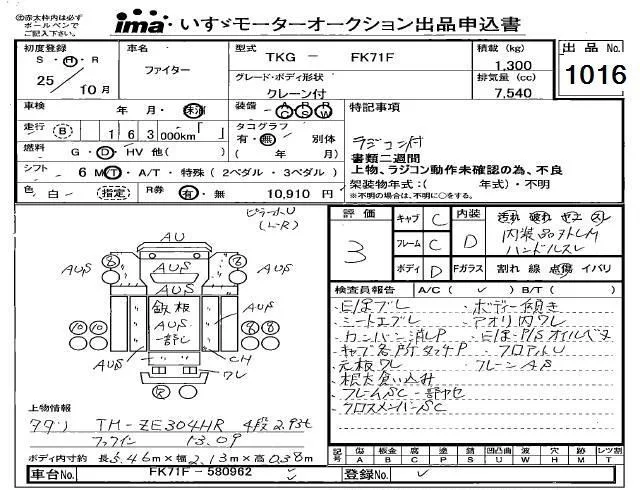 ㊟赤太枠内は必ず
ボールペンで
ご記入下さい。
ima いすゞモーターオークション出品申込書
初度登録
S・H・R
25 / 10月
車名
ファイター
型式
TKG - FK71F
グレード・ボディ形状
クレーン付
積載(kg)
1,300
排気量(cc)
7,540
出品 No.
1016
車検 年・月・抹消
装備 A/C P/S R/W
走行 B 163 000km
タコグラフ
有・無 別体
( 年 月)
燃料 G・D・HV 他( )
シフト 6 M/T・A/T・特殊(2ペダル・3ペダル)
色 白 (指定) R券 有・無 10,910 円
特記事項
ラジコン付
書類二週間
上物、ラジコン動作未確認の為、不良
架装物年式:( 年式)・不明
※不明の場合は、不明に○をする。
ピラートU
(L・R)
AU
AUS
AUS
AUS
AUS
AUS
AUS
AUS
鉄板
AUS
一部し
CH
ワレ
評価
3
キャブ C
フレーム C
ボディ D
内装 D
汚れ 破れ ヤニ スレ
内装品ヌトレM
ハンドルスレ
Fガラス 割れ 線 点傷 イバリ
検査員報告 A/C( ✓ ) B/T( )
・シートエブレ
・ボディー傾き
・アオリ内ワレ
・フロアトU
・元板ワレ
・フレームAS
・根太食い込み
・フレームSC一部ヤセ
・クロスメンバーSC
上物情報
タダノ TM-ZE304HR 4段 2.93t
ファイン 13.09
ボディ内寸約 長さ3.46m×幅2.13m×高さ0.38m
記号 傷A 板金B 腐C 塗P 錆S 凹凸曲U 波W 穴H 難M レツ割T
車台No. FK71F-580962
登録No.